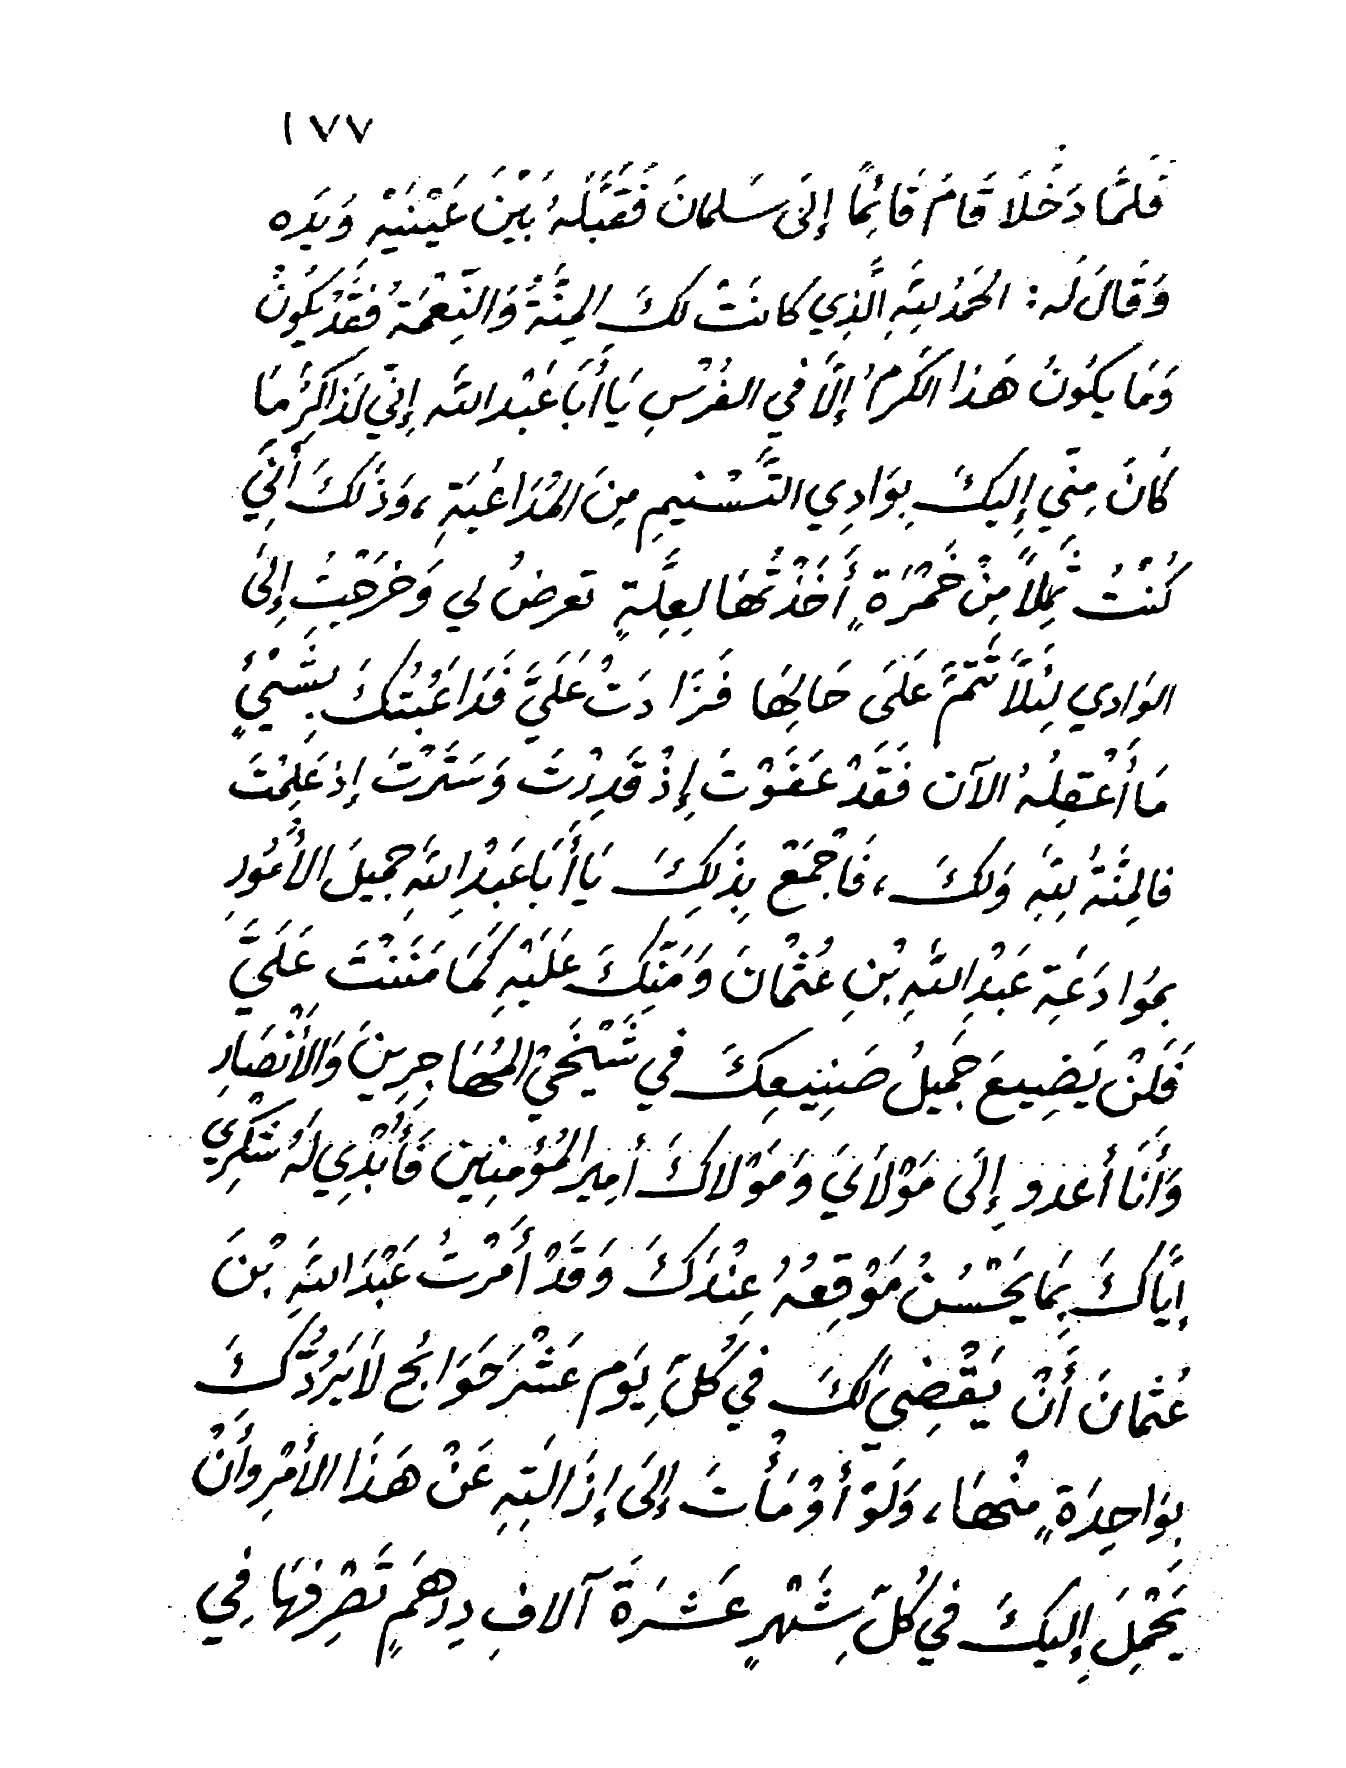 ١٧٧
فَلَمَّا دَخَلَا قَامَ قَائِمًا إِلَى سَلمانَ فَقَبَّلَهُ بَيْنَ عَيْنَيْهِ وَيَدَه
وَقَالَ لَه : الحَمْدُ للهِ الَّذِي كانَتْ لكَ المِنَّةُ وَالنِّعْمَةُ فَقَدْ يَكُونُ
وَمَا يَكُونُ هَذا الكَرمُ إِلَّا في الفُرْسِ يَا أَبَا عَبْد الله إِنّي لَذَاكِرُ مَا
كَانَ مِنّي إِليكَ بِوَادِي التَّسْنيمِ مِنَ المُدَاعَبَةِ ، وَذَلكَ أَنِّي
كُنْتُ ثَمِلاً مِنْ خَمْرَةٍ أَخَذْتُهَا لِعِلَّةٍ تَعرضُ لي وَخَرَجْتُ إِلىَ
الوَادي لِئَلاَّ تَتِمَّ عَلَى حَالِهَا فَزَادَتْ عَلَيَّ فَدَاعَبْتُكَ بِشَيْءٍ
مَا أَعْقِلُهُ الآن فَقَدْ عَفَوْتَ إِذْ قَدِرْتَ وَسَتَرْتَ إِذ عَلِمْتَ
فالمِنَّةُ للهِ وَلكَ ، فَاجْمَعْ بِذَلِكَ يَا أَبَا عَبْدِ اللهِ جَميلَ الأُمُورِ
بمُوَادَعَةِ عَبْدِ اللهِ بْنِ عُثْمانَ وَمَنِّكَ عَلَيْهِ كَمَا مَنَنْتَ عَلَيَّ
فَلَنْ يَضِيعَ جَمِيلُ صَنِيعِكَ في شَيْخَيْ المُهَاجِرِينَ وَالأَنْصَارِ
وَأَنَا أَغدو إِلَى مَوْلاَيَ وَمَوْلاكَ أَمِير المُؤمِنِين فَأُبْدِي لَهُ شكْرِي
إِيَّاكَ بِمَا يَحْسُنُ مَوْقِعهُ عِنْدَكَ وَقَدْ أَمَرْتُ عَبْدَ اللهِ بْنَ
عُثمانَ أَنْ يَقْضِيَ لكَ في كُلِّ يَوم عَشْرَ حَوَائجَ لاَ يَرُدُّكَ
بِوَاحِدَةٍ مِنْهَا ، وَلَوْ أَوْمَأْتَ إِلَى إِزَالَتِهِ عَنْ هَذَا الأَمْرِ وَأَنْ
يَحْمِلَ إِليكَ في كُلِّ شَهْرٍ عَشرَةَ آلافِ دِرهَمٍ تَصْرِفهَا فِي